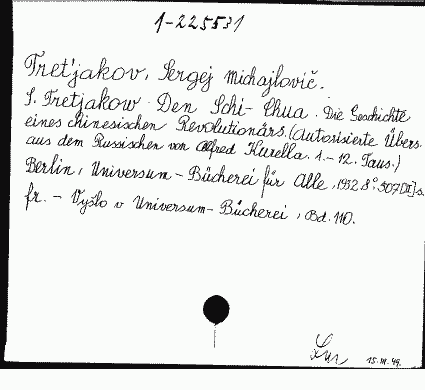 1-225531
Tret'jakov, Sergej Michajlovič.
S. Tretjakow Den Schi-Chua. Die Geschichte
eines chinesischen Revolutionärs. (Autorisierte Übers.
aus dem Russischen von Alfred Kurella. 1.-12. Taus.)
Berlin, Universum-Bücherei für Alle, 1932. 8°. 507 [II] s.
fr. - Vyšlo v Universum-Bücherei, Bd. 110.
15. III. 49.